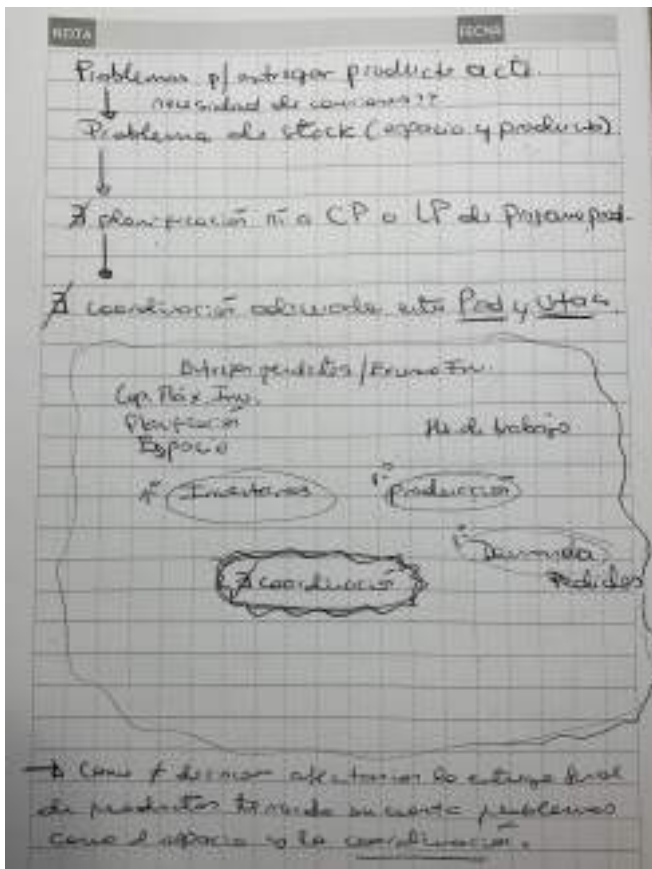 NOTA
FECHA
Problemas p/ entregar producto
necesidad de camiones??
Problema de stock (espacio y producto).
∄ planificación ni a CP o LP de
∄ coordinación adecuada entre Prod y Vtas.
Entregas perdidas /
Cap. Máx. Inv.
Planificación
Espacio
Hs de trabajo
Inventarios
producción
Demanda
Pedidos
∄ coordinación
→ Como ≠ afectarían la entrega final
de productos teniendo en cuenta problemas
como el espacio y la coordinación.